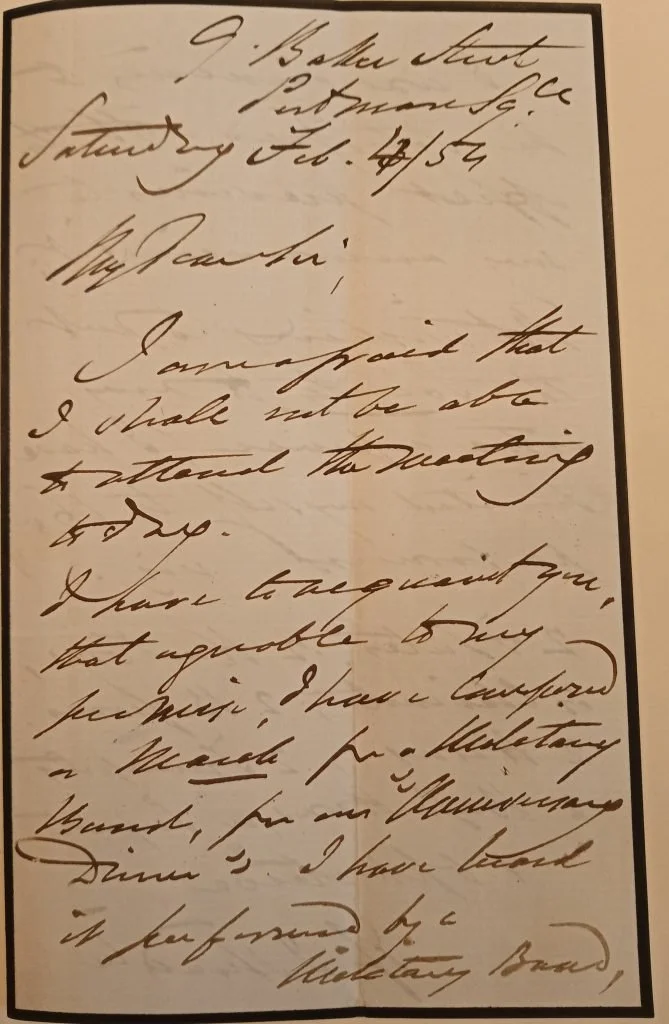 9. Baker Street
Portman Sq.re
Saturday Feb. 4/54
My Dear Sir,
I am afraid that
I shall not be able
to attend the meeting
to day.
I have to acquaint you,
that agreeable to my
promise, I have composed
a March for a Military
Band, for our "Anniversary
Dinner". I have heard
it performed by a
Military Band,